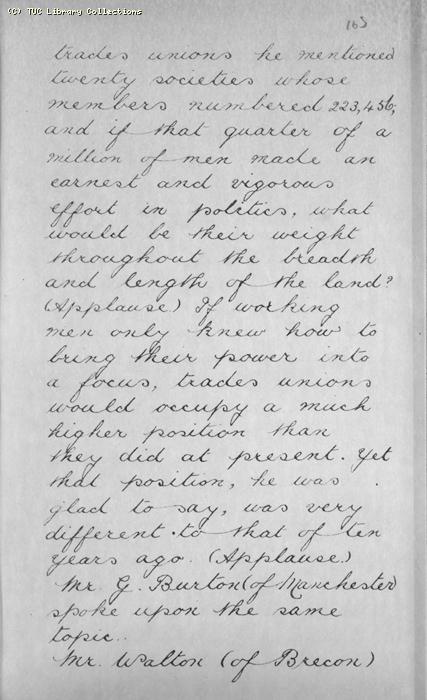 (C) TUC Library Collections
163
trades unions he mentioned
twenty societies whose
members numbered 223,456,
and if that quarter of a
million of men made an
earnest and vigorous
effort in politics, what
would be their weight
throughout the breadth
and length of the land?
(Applause) If working
men only knew how to
bring their power into
a focus, trades unions
would occupy a much
higher position than
they did at present. Yet
that position, he was
glad to say, was very
different to that of ten
years ago. (Applause.)
Mr. G. Burton (of Manchester)
spoke upon the same
topic.
Mr. Walton (of Brecon)